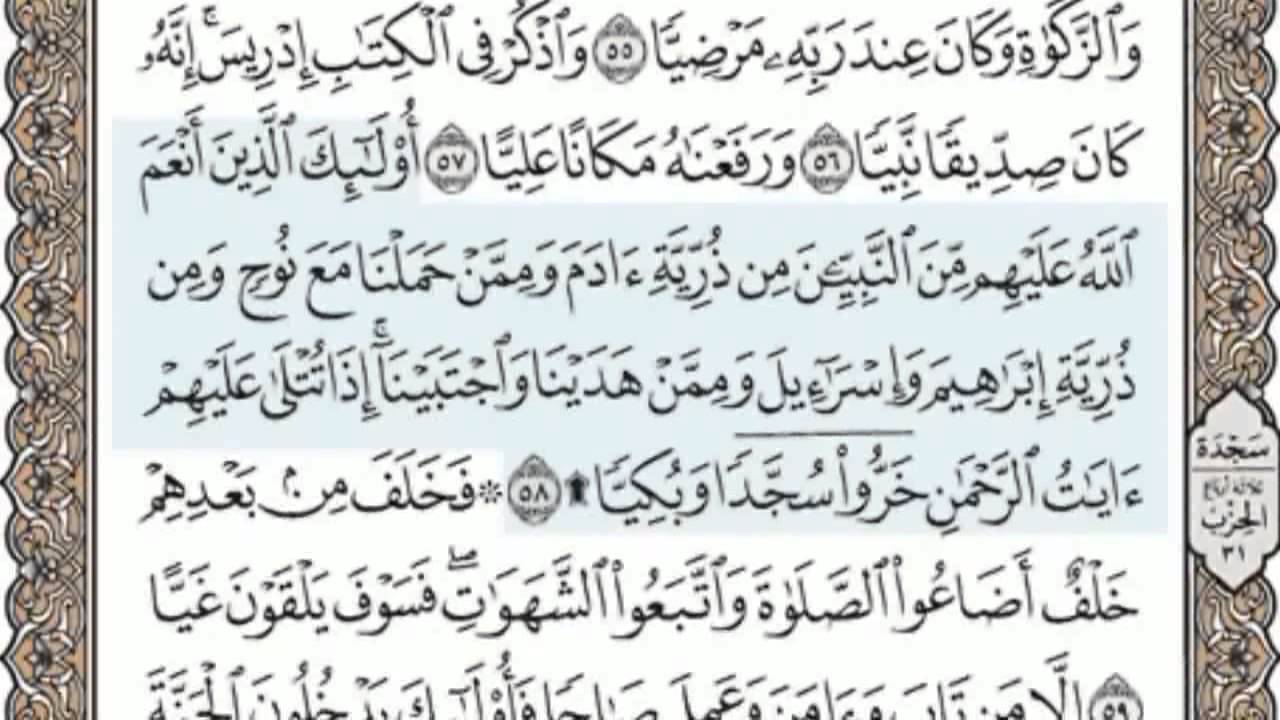 وَٱلزَّكَوٰةِ وَكَانَ عِندَ رَبِّهِۦ مَرۡضِيّٗا ٥٥ وَٱذۡكُرۡ فِي ٱلۡكِتَٰبِ إِدۡرِيسَۚ إِنَّهُۥ
كَانَ صِدِّيقٗا نَّبِيّٗا ٥٦ وَرَفَعۡنَٰهُ مَكَانًا عَلِيًّا ٥٧ أُوْلَٰٓئِكَ ٱلَّذِينَ أَنۡعَمَ
ٱللَّهُ عَلَيۡهِم مِّنَ ٱلنَّبِيِّـۧنَ مِن ذُرِّيَّةِ ءَادَمَ وَمِمَّنۡ حَمَلۡنَا مَعَ نُوحٖ وَمِن
ذُرِّيَّةِ إِبۡرَٰهِيمَ وَإِسۡرَٰٓءِيلَ وَمِمَّنۡ هَدَيۡنَا وَٱجۡتَبَيۡنَآۚ إِذَا تُتۡلَىٰ عَلَيۡهِمۡ
ءَايَٰتُ ٱلرَّحۡمَٰنِ خَرُّواْۤ سُجَّدٗا وَبُكِيّٗا ۩ ٥٨ ۞ فَخَلَفَ مِنۢ بَعۡدِهِمۡ
خَلۡفٌ أَضَاعُواْ ٱلصَّلَوٰةَ وَٱتَّبَعُواْ ٱلشَّهَوَٰتِۖ فَسَوۡفَ يَلۡقَوۡنَ غَيًّا
٥٩ إِلَّا مَن تَابَ وَءَامَنَ وَعَمِلَ صَٰلِحٗا فَأُوْلَٰٓئِكَ يَدۡخُلُونَ ٱلۡجَنَّةَ
سَجۡدَة
ثلاثة أرباع
الحزب
٣١